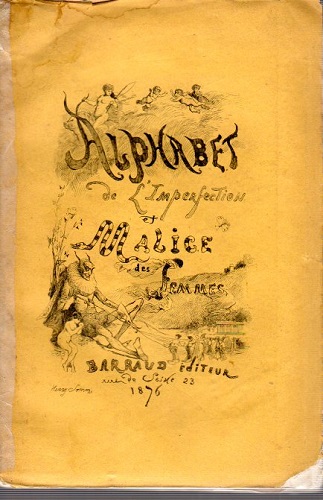 ALPHABET
de L'Imperfection
et
MALICE
des
FEMMES
BARRAUD ÉDITEUR
rue de Seine 23
1876